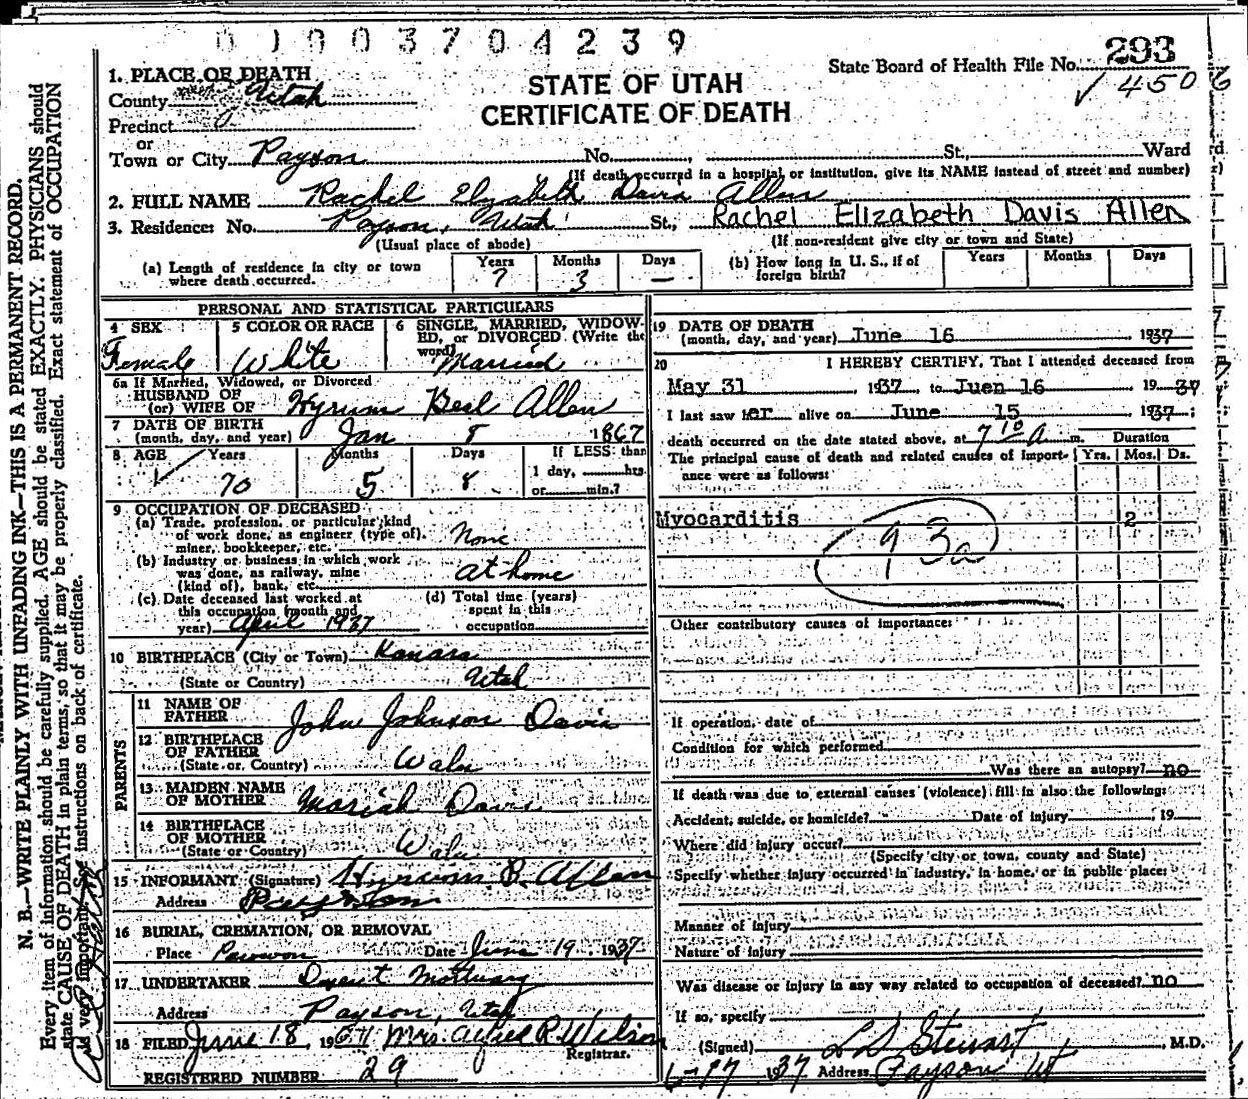 0 1 0 0 3 7 0 4 2 3 9
293
State Board of Health File No.
4506
STATE OF UTAH
CERTIFICATE OF DEATH
1. PLACE OF DEATH
County Utah
Precinct
or
Town or City Payson No. , St., Ward
(If death occurred in a hospital or institution, give its NAME instead of street and number)
2. FULL NAME Rachel Elizabeth Davis Allen
3. Residence: No. Payson, Utah St., Rachel Elizabeth Davis Allen
(Usual place of abode) (If non-resident give city or town and State)
(a) Length of residence in city or town where death occurred. Years 7 Months 3 Days —
(b) How long in U. S., if of foreign birth? Years Months Days
PERSONAL AND STATISTICAL PARTICULARS
4 SEX Female
5 COLOR OR RACE White
6 SINGLE, MARRIED, WIDOWED, or DIVORCED. (Write the word) Married
6a If Married, Widowed, or Divorced
HUSBAND OF
(or) WIFE OF Hyrum Allen
7 DATE OF BIRTH
(month, day, and year) Jan 8 1867
8 AGE Years 70 Months 5 Days 8
If LESS than
1 day, hrs.
or min.?
9 OCCUPATION OF DECEASED
(a) Trade, profession, or particular kind
of work done, as engineer (type of), None
miner, bookkeeper, etc.
(b) Industry or business in which work
was done, as railway, mine at home
(kind of), bank, etc.
(c) Date deceased last worked at
this occupation (month and
year) April 1937
(d) Total time (years)
spent in this
occupation
10 BIRTHPLACE (City or Town) Kanara
(State or Country) Utah
PARENTS
11 NAME OF
FATHER John Johnson Davis
12 BIRTHPLACE
OF FATHER
(State or Country) Wales
13 MAIDEN NAME
OF MOTHER Mariah Davis
14 BIRTHPLACE
OF MOTHER
(State or Country) Wales
15 INFORMANT (Signature) Hyrum B. Allen
Address Payson
16 BURIAL, CREMATION, OR REMOVAL
Place Date June 19, 1937
17 UNDERTAKER Mortuary
Address Payson, Utah
18 FILED June 18, 19 Mrs. Alfred R. Wilson
Registrar.
REGISTERED NUMBER 29
19 DATE OF DEATH
(month, day, and year) June 16 1937
20 I HEREBY CERTIFY, That I attended deceased from
May 31 , 1937 to Juen 16 19 37
I last saw her alive on June 15 1937 ;
death occurred on the date stated above, at 7 10 A m. Duration
The principal cause of death and related causes of importance were as follows: Yrs. Mos. Ds.
Myocarditis 2
93a
Other contributory causes of importance:
If operation, date of
Condition for which performed
Was there an autopsy? no
If death was due to external causes (violence) fill in also the following:
Accident, suicide, or homicide? Date of injury , 19
Where did injury occur?
(Specify city or town, county and State)
Specify whether injury occurred in industry, in home, or in public place:
Manner of injury
Nature of injury
Was disease or injury in any way related to occupation of deceased? no
If so, specify
(Signed) L D Stewart , M.D.
6-17 1937 Address Payson Ut
N. B.—WRITE PLAINLY WITH UNFADING INK—THIS IS A PERMANENT RECORD.
Every item of information should be carefully supplied. AGE should be stated EXACTLY. PHYSICIANS should
state CAUSE OF DEATH in plain terms, so that it may be properly classified. Exact statement of OCCUPATION
is very important. See instructions on back of certificate.